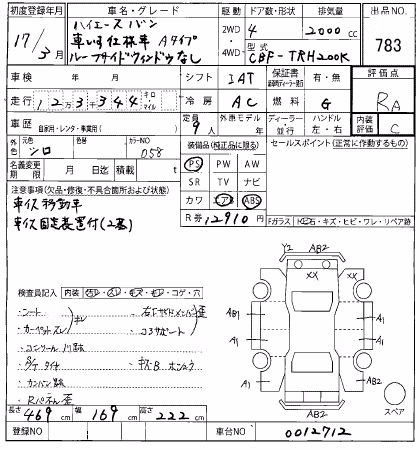 初度登録年月 車名・グレード 駆動 ドア数・形状 排気量 出品No.
17/3月 ハイエース バン 車いす仕様車 Aタイプ ルーフサイドウィンドウなし
2WD・4WD 4 2000cc 783
型式 CBF-TRH200K
車検 年 月 シフト IAT 保証書 有・無 評価点
走行 12万3千344 キロ マイル 冷房 AC 燃料 G RA
車歴 自家用・レンタ・事業用( ) 定員 9人 外車モデル 年 ディーラー・並行 ハンドル 左・右 内装評価 C
外色 元色 シロ 色替 カラーNo 058 装備品(純正品に限る) セールスポイント(正常に作動するもの)
名義変更期限 月 日迄 積載 t
PS PW AW
SR TV ナビ
カワ エアB ABS
R券 12910円
注意事項(欠品・修復・不具合箇所および状態)
車イス移動車
車イス固定装置付(2基)
Fガラス 石・キズ・ヒビ・ワレ・リペア跡
検査員記入 内装
・シート
・カーペットスレ
・コアサポート
・Rパネル歪
Y2 AB2
XX XX
AB1 A1
A1 A1
A1 AB2
AB2
スペア
長さ 469cm 幅 169cm 高さ 222cm
登録No 車台No 0012712